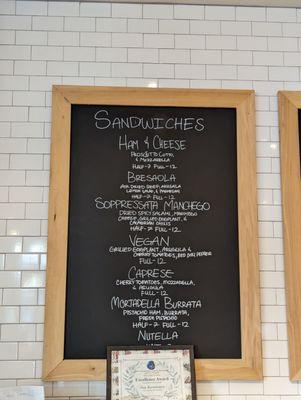 SANDWICHES
HAM & CHEESE
PROSCIUTTO COTTO,
& MOZZARELLA
HALF-7 FULL-12
BRESAOLA
AIR DRIED BEEF, ARUGULA
LEMON JUICE, & PARMESAN
HALF-7 FULL-12
SOPPRESSATA MANCHEGO
DRIED SPICY SALAMI, MANCHEGO
CHEESE, GRILLED EGGPLANT, &
CALABRIAN CHILIS
HALF-7 FULL-12
VEGAN
GRILLED EGGPLANT, ARUGULA &
CHERRY TOMATOES, RED BELL PEPPER
FULL-12
CAPRESE
CHERRY TOMATOES, MOZZARELLA,
& ARUGULA
FULL-12
MORTADELLA BURRATA
PISTACHIO HAM, BURRATA,
FRESH PISTACHIO
HALF-7 FULL-12
NUTELLA
Excellence Award